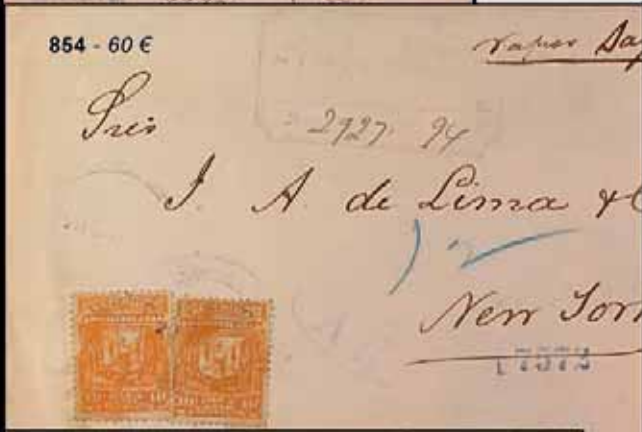 854 - 60 €
vapor
Sres
2927. 94
J. A. de Lima & C
New York
17572